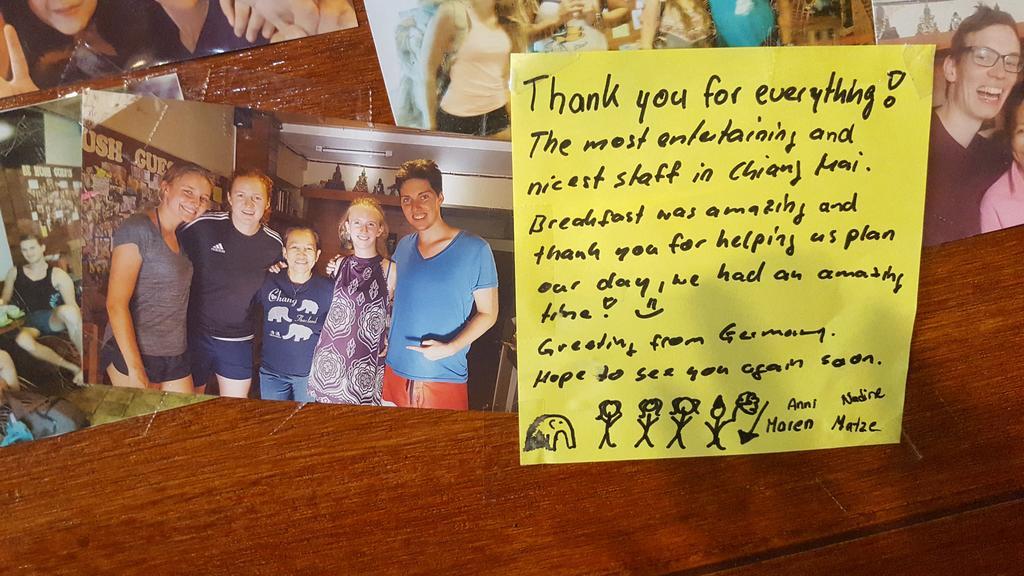 OSH GUES
Chang
Thailand
Thank you for everything!
The most entertaining and
nicest staff in Chiang Mai.
Breakfast was amazing and
thank you for helping us plan
our day, we had an amazing
time!
Greeting from Germany.
Hope to see you again soon.
Anni Nadine
Maren Matze